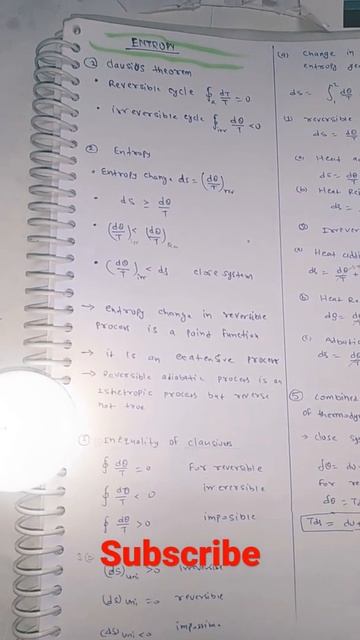 ENTROPY
① clausius theorem
• Reversible cycle ∮_R dT/T = 0
• irreversible cycle ∮_irr dθ/T < 0
② Entropy
• Entropy change ds = (dθ/T)_rev
• ds ≥ dθ/T
• (dθ/T)_irr < (dθ/T)_Rev
• (dθ/T)_irr < ds close system
→ entropy change in reversible
process is a point function
→ it is an extensive process
→ Reversible adiabatic process is an
isentropic process but reverse
not true
Inequality of clausius
∮ dθ/T = 0 For reversible
∮ dθ/T < 0 irreversible
∮ dθ/T > 0 impossible
(ds)uni >0
(ds) uni =0 reversible
(ds) uni <0 impossible
(a) change in
entropy
ds = ∫ dθ/T
reversible
ds = dθ/T
(a) Heat
ds = dθ/T
(b) Heat
ds =
Irrever
(a) Heat addi
ds = dθ/T +
(b) Heat Re
(c) Adbatic
ds =
⑤ combined
of thermody
→ close sy
For re
Tds = du
Subscribe